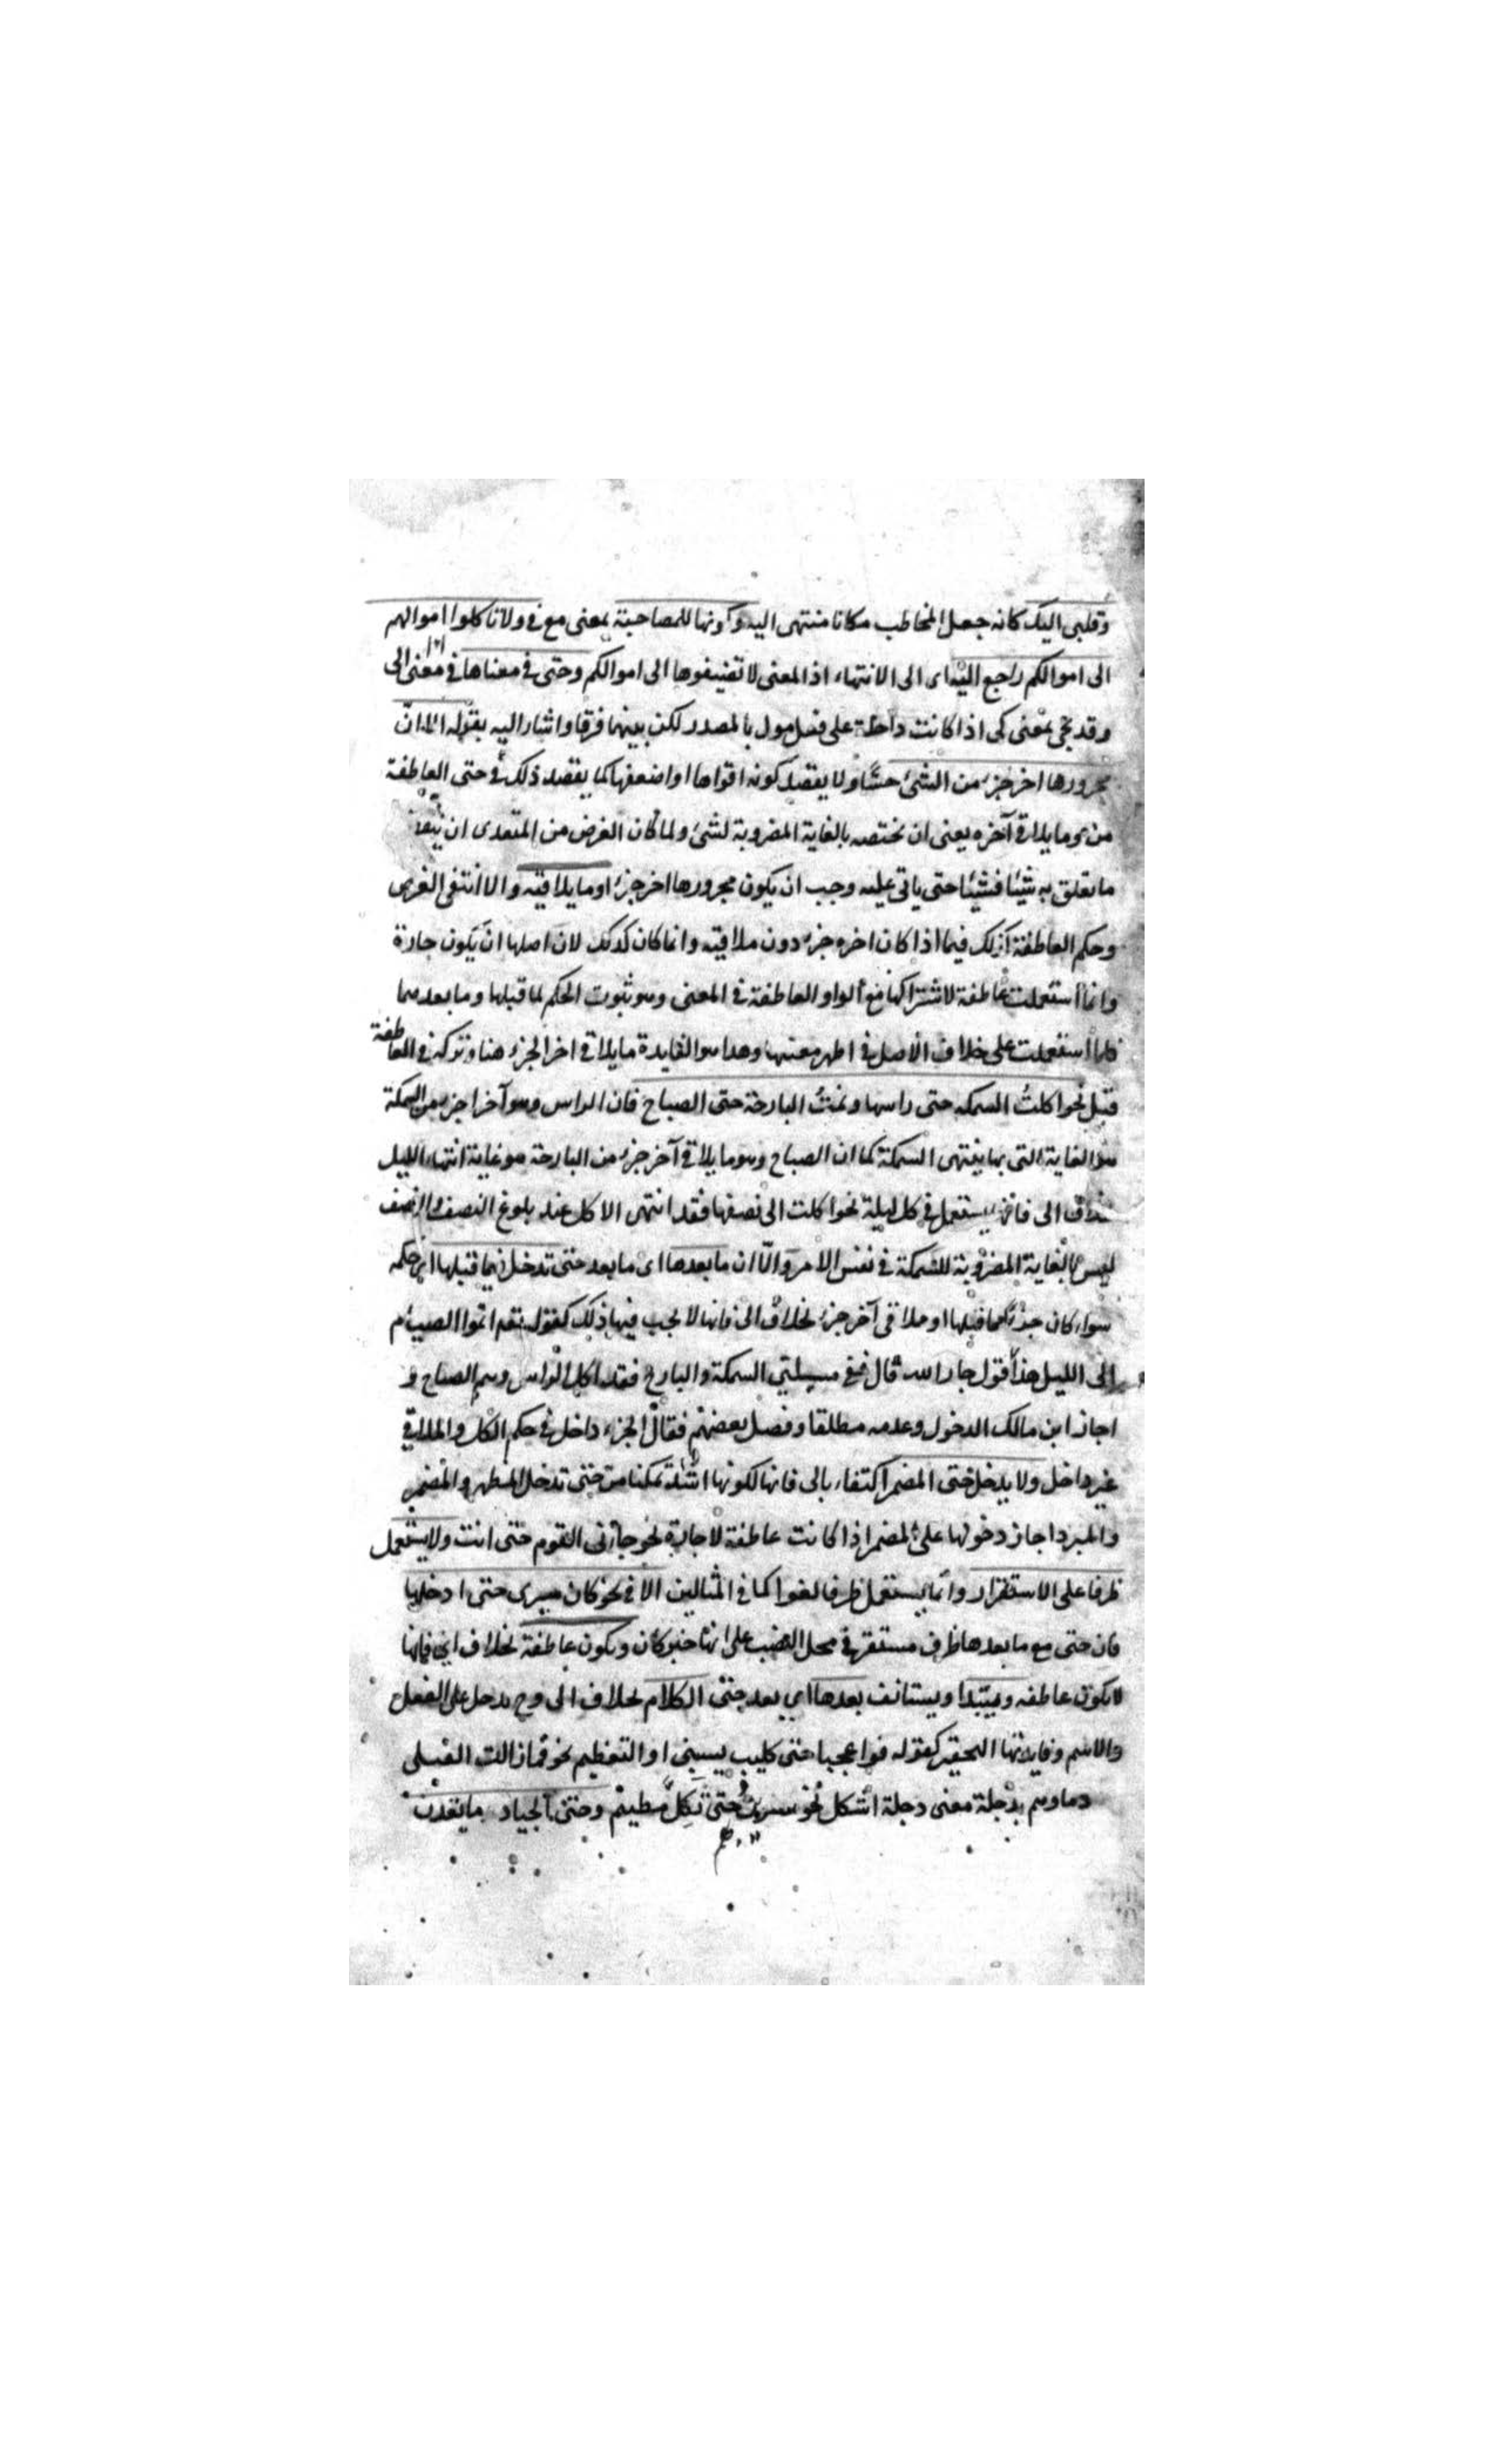 وقلبى اليك كانه جعل المخاطب مكانا منتهى اليه وكونها للمصاحبة بمعنى مع فى ولا تاكلوا اموالهم
الى اموالكم راجع اليه اى الى الانتهاء اذ المعنى لا تضيفوها الى اموالكم وحتى فى معناها اى فى معنى الى
وقد يجئ بمعنى كى اذا كانت داخلة على فعل مول بالمصدر لكن بينهما فرقا واشار اليه بقوله الا ان
مجرورها اخر جزء من الشئ حسًّا ولا يقصد كونه اقواها او اضعفها كما يقصد ذلك فى حتى العاطفة
او ما يلاقى آخره يعنى ان يختص بالغاية المضروبة لشئ ولما كان الغرض من المتعدى ان
ما يتعلق به شيئا فشيئا حتى ياتى عليه وجب ان يكون مجرورها اخر جزء او ما يلاقيه والا انتفى الغرض
وحكم العاطفة كذلك فيما اذا كان اخره جزء دون ملاقيه وانما كان كذلك لان اصلها ان يكون جارة
وانما استعملت عاطفة لاشتراكها مع الواو العاطفة فى المعنى وهو ثبوت الحكم لما قبلها وما بعدها
فلما استعملت على خلاف الاصل فى اظهر معنيها وهذا هو الفايدة ما يلاقى اخر الجزء هنا وتركه فى العاطفة
قيل نحو اكلتُ السمكه حتى راسها ونمتُ البارحة حتى الصباح فان الراس وهو آخر اجزء من السمكة
هو الغاية التى بها ينتهى السمكة كما ان الصباح وهو ما يلاقى آخر جزء من البارحة هو غاية انتهاء الليل
بخلاف الى فانه يستعمل فى كل ليلة نحو اكلت الى نصفها فقد انتهى الاكل عند بلوغ النصف والنصف
ليس بالغاية المضروبة للسمكة فى نفس الامر والّا ان ما بعدها اى ما بعد حتى تدخل فيما قبلها اى حكمه
سواء كان جزئا مما قبلها او ملاقى آخر جزء بخلاف الى فانها لا يجب فيها ذلك كقوله تعم اتموا الصيام
الى الليل هذا قول جار الله قال ففى مسيلتي السمكة والبارح فقد اكل الراس ونيم الصباح و
اجاز ابن مالك الدخول وعدمه مطلقا وفصل بعضهم فقال الجزء داخل فى حكم الكل والملاقي
غير داخل ولا يدخل حتى المضمر اكتفاء بالى فانها لكونها اشد تمكنا من حتى تدخل المظهر والمضمر
والمبرد اجاز دخولها على المضمر اذا كانت عاطفة لا جارة نحو جاءنى القوم حتى انت ولا يستعمل
ظرفا على الاستقرار وانما يستعمل ظرفا لغوا كما فى المثالين الا فى نحو كان سيرى حتى ادخلها
فان حتى مع ما بعدها ظرف مستقر فى محل النصب على انها خبر كان ويكون عاطفة بخلاف الى فانها
لا يكون عاطفه ويبتدا ويستانف بعدها اي بعد حتى الكلام بخلاف الى وح يدخل على الفعل
والاسم وفايدتها التحقير كقوله فوا عجبا حتى كليب يسبنى او التعظيم نحو فما زالت القتلى
دماوهم بدجلة معنى دجلة اشكل نحو سريت حتى تكل مطيهم وحتى الجياد ما يقدن